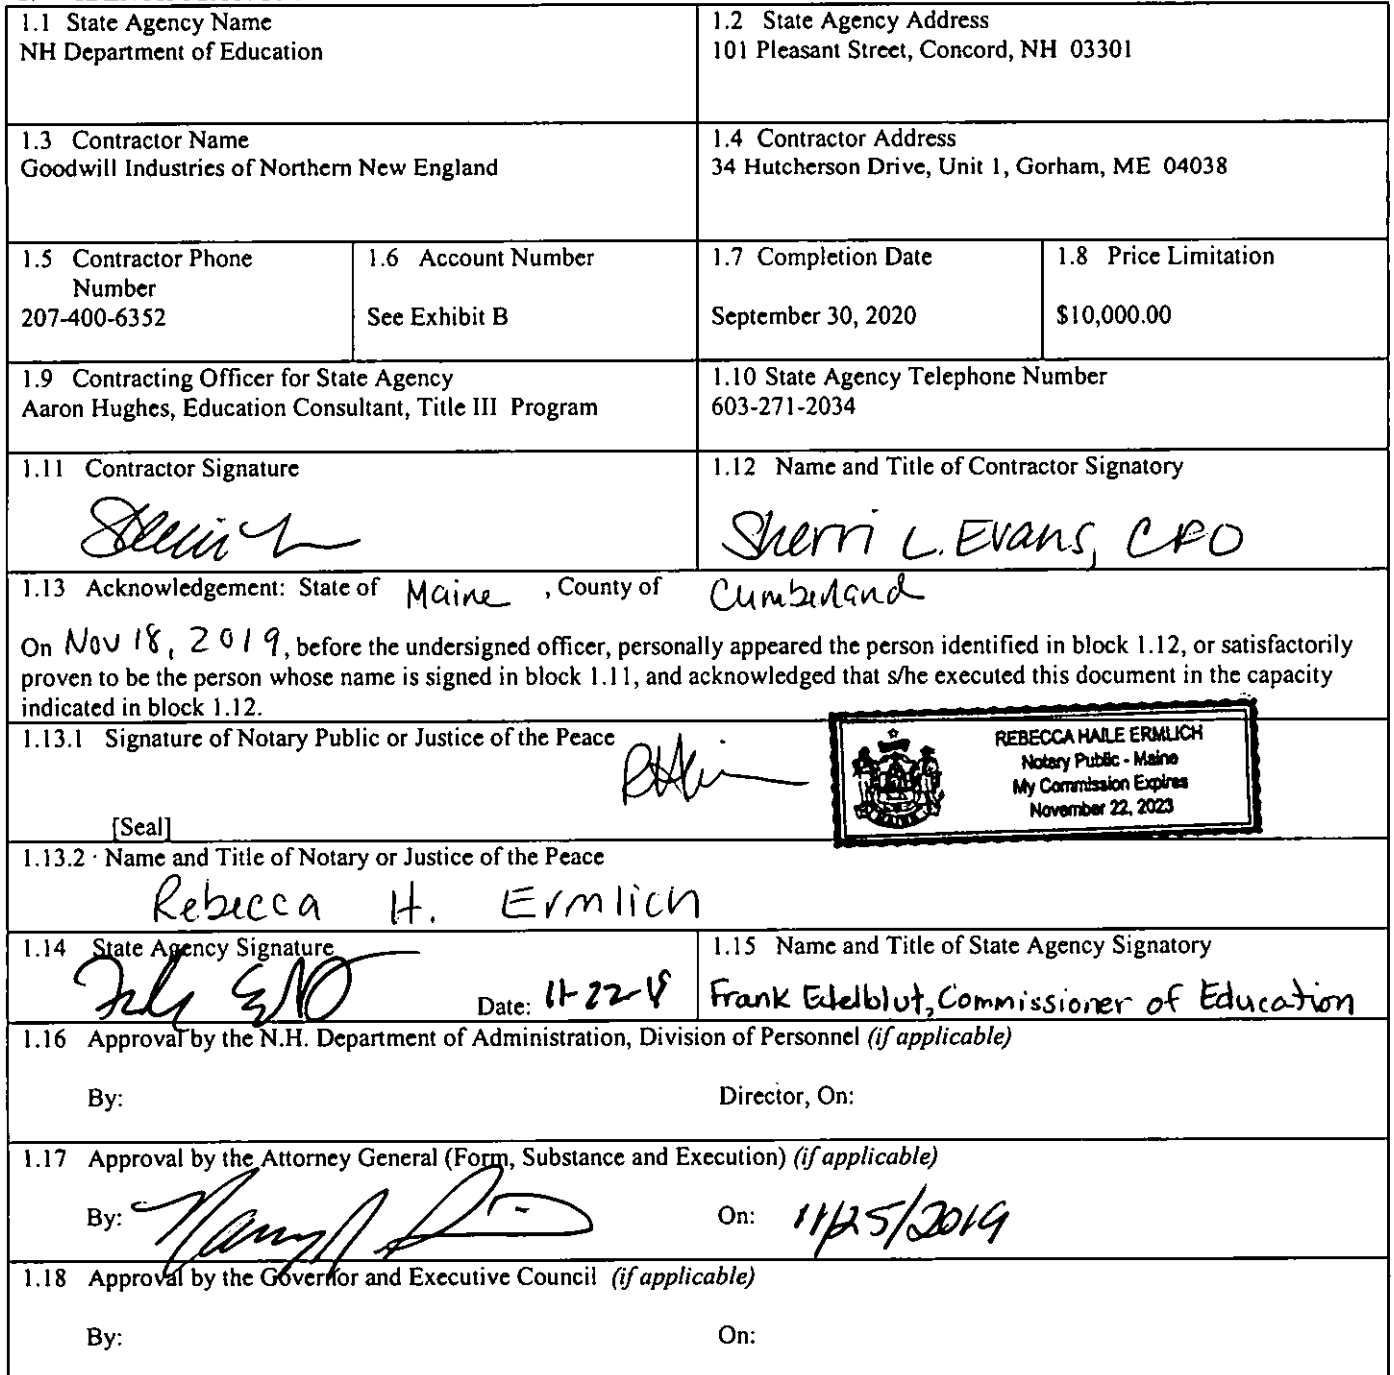 1.1 State Agency Name
NH Department of Education
1.2 State Agency Address
101 Pleasant Street, Concord, NH 03301
1.3 Contractor Name
Goodwill Industries of Northern New England
1.4 Contractor Address
34 Hutcherson Drive, Unit 1, Gorham, ME 04038
1.5 Contractor Phone
Number
207-400-6352
1.6 Account Number
See Exhibit B
1.7 Completion Date
September 30, 2020
1.8 Price Limitation
$10,000.00
1.9 Contracting Officer for State Agency
Aaron Hughes, Education Consultant, Title III Program
1.10 State Agency Telephone Number
603-271-2034
1.11 Contractor Signature
1.12 Name and Title of Contractor Signatory
Sherri L. Evans,
1.13 Acknowledgement: State of Maine , County of Cumberland
On Nov 18, 2019, before the undersigned officer, personally appeared the person identified in block 1.12, or satisfactorily
proven to be the person whose name is signed in block 1.11, and acknowledged that s/he executed this document in the capacity
indicated in block 1.12.
1.13.1 Signature of Notary Public or Justice of the Peace
[Seal]
REBECCA HAILE ERMLICH
Notary Public - Maine
My Commission Expires
November 22, 2023
1.13.2 Name and Title of Notary or Justice of the Peace
Rebecca H. Ermlich
1.14 State Agency Signature
Date:
1.15 Name and Title of State Agency Signatory
Frank Edelblut, Commissioner of Education
1.16 Approval by the N.H. Department of Administration, Division of Personnel (if applicable)
By:
Director, On:
1.17 Approval by the Attorney General (Form, Substance and Execution) (if applicable)
By:
On: 11/25/2019
1.18 Approval by the Governor and Executive Council (if applicable)
By:
On: